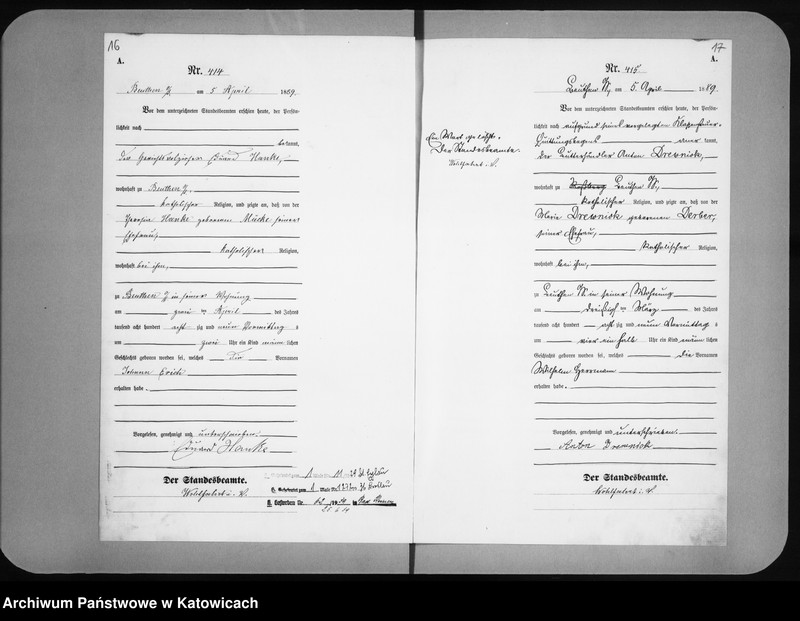 16
A.
Nr. 414
Beuthen O/S am 5 April 1889.
Vor dem unterzeichneten Standesbeamten erschien heute, der Persön-
lichkeit nach
bekannt,
der Eduard Hanke,
wohnhaft zu Beuthen O/S,
katholischer Religion, und zeigte an, daß von der
Hanke geborenen seiner
Ehefrau,
katholischer Religion,
wohnhaft bei ihm,
zu Beuthen O/S in seiner Wohnung
am zwei ten April des Jahres
tausend acht hundert acht zig und neun Vormittags
um zwei Uhr ein Kind männlichen
Geschlechts geboren worden sei, welches die Vornamen
Johann Erich
erhalten habe.
Vorgelesen, genehmigt und unterschrieben.
Eduard Hanke
Der Standesbeamte.
Wohlfahrt i. V.
17
A.
Nr. 415
Beuthen O/S, am 5. April 1889.
Vor dem unterzeichneten Standesbeamten erschien heute, der Persön-
lichkeit nach auf Grund seines vorgelegten Klassensteuer-
Quittungsbogens aner kannt,
der Anton Drewniok,
wohnhaft zu Roßberg Beuthen O/S,
katholischer Religion, und zeigte an, daß von der
Maria Drewniok geborenen Derber,
seiner Ehefrau,
katholischer Religion,
wohnhaft bei ihm,
zu Beuthen O/S. in seiner Wohnung
am dreißigsten März des Jahres
tausend acht hundert acht zig und neun Vormittags
um vier ein halb Uhr ein Kind männlichen
Geschlechts geboren worden sei, welches die Vornamen
Wilhelm Herrmann
erhalten habe.
Vorgelesen, genehmigt und unterschrieben.
Anton Drewniok
Der Standesbeamte.
Wohlfahrt i. V.
Ein Wort gelöscht.
Der Standesbeamte.
Wohlfahrt i. V.
Archiwum Państwowe w Katowicach